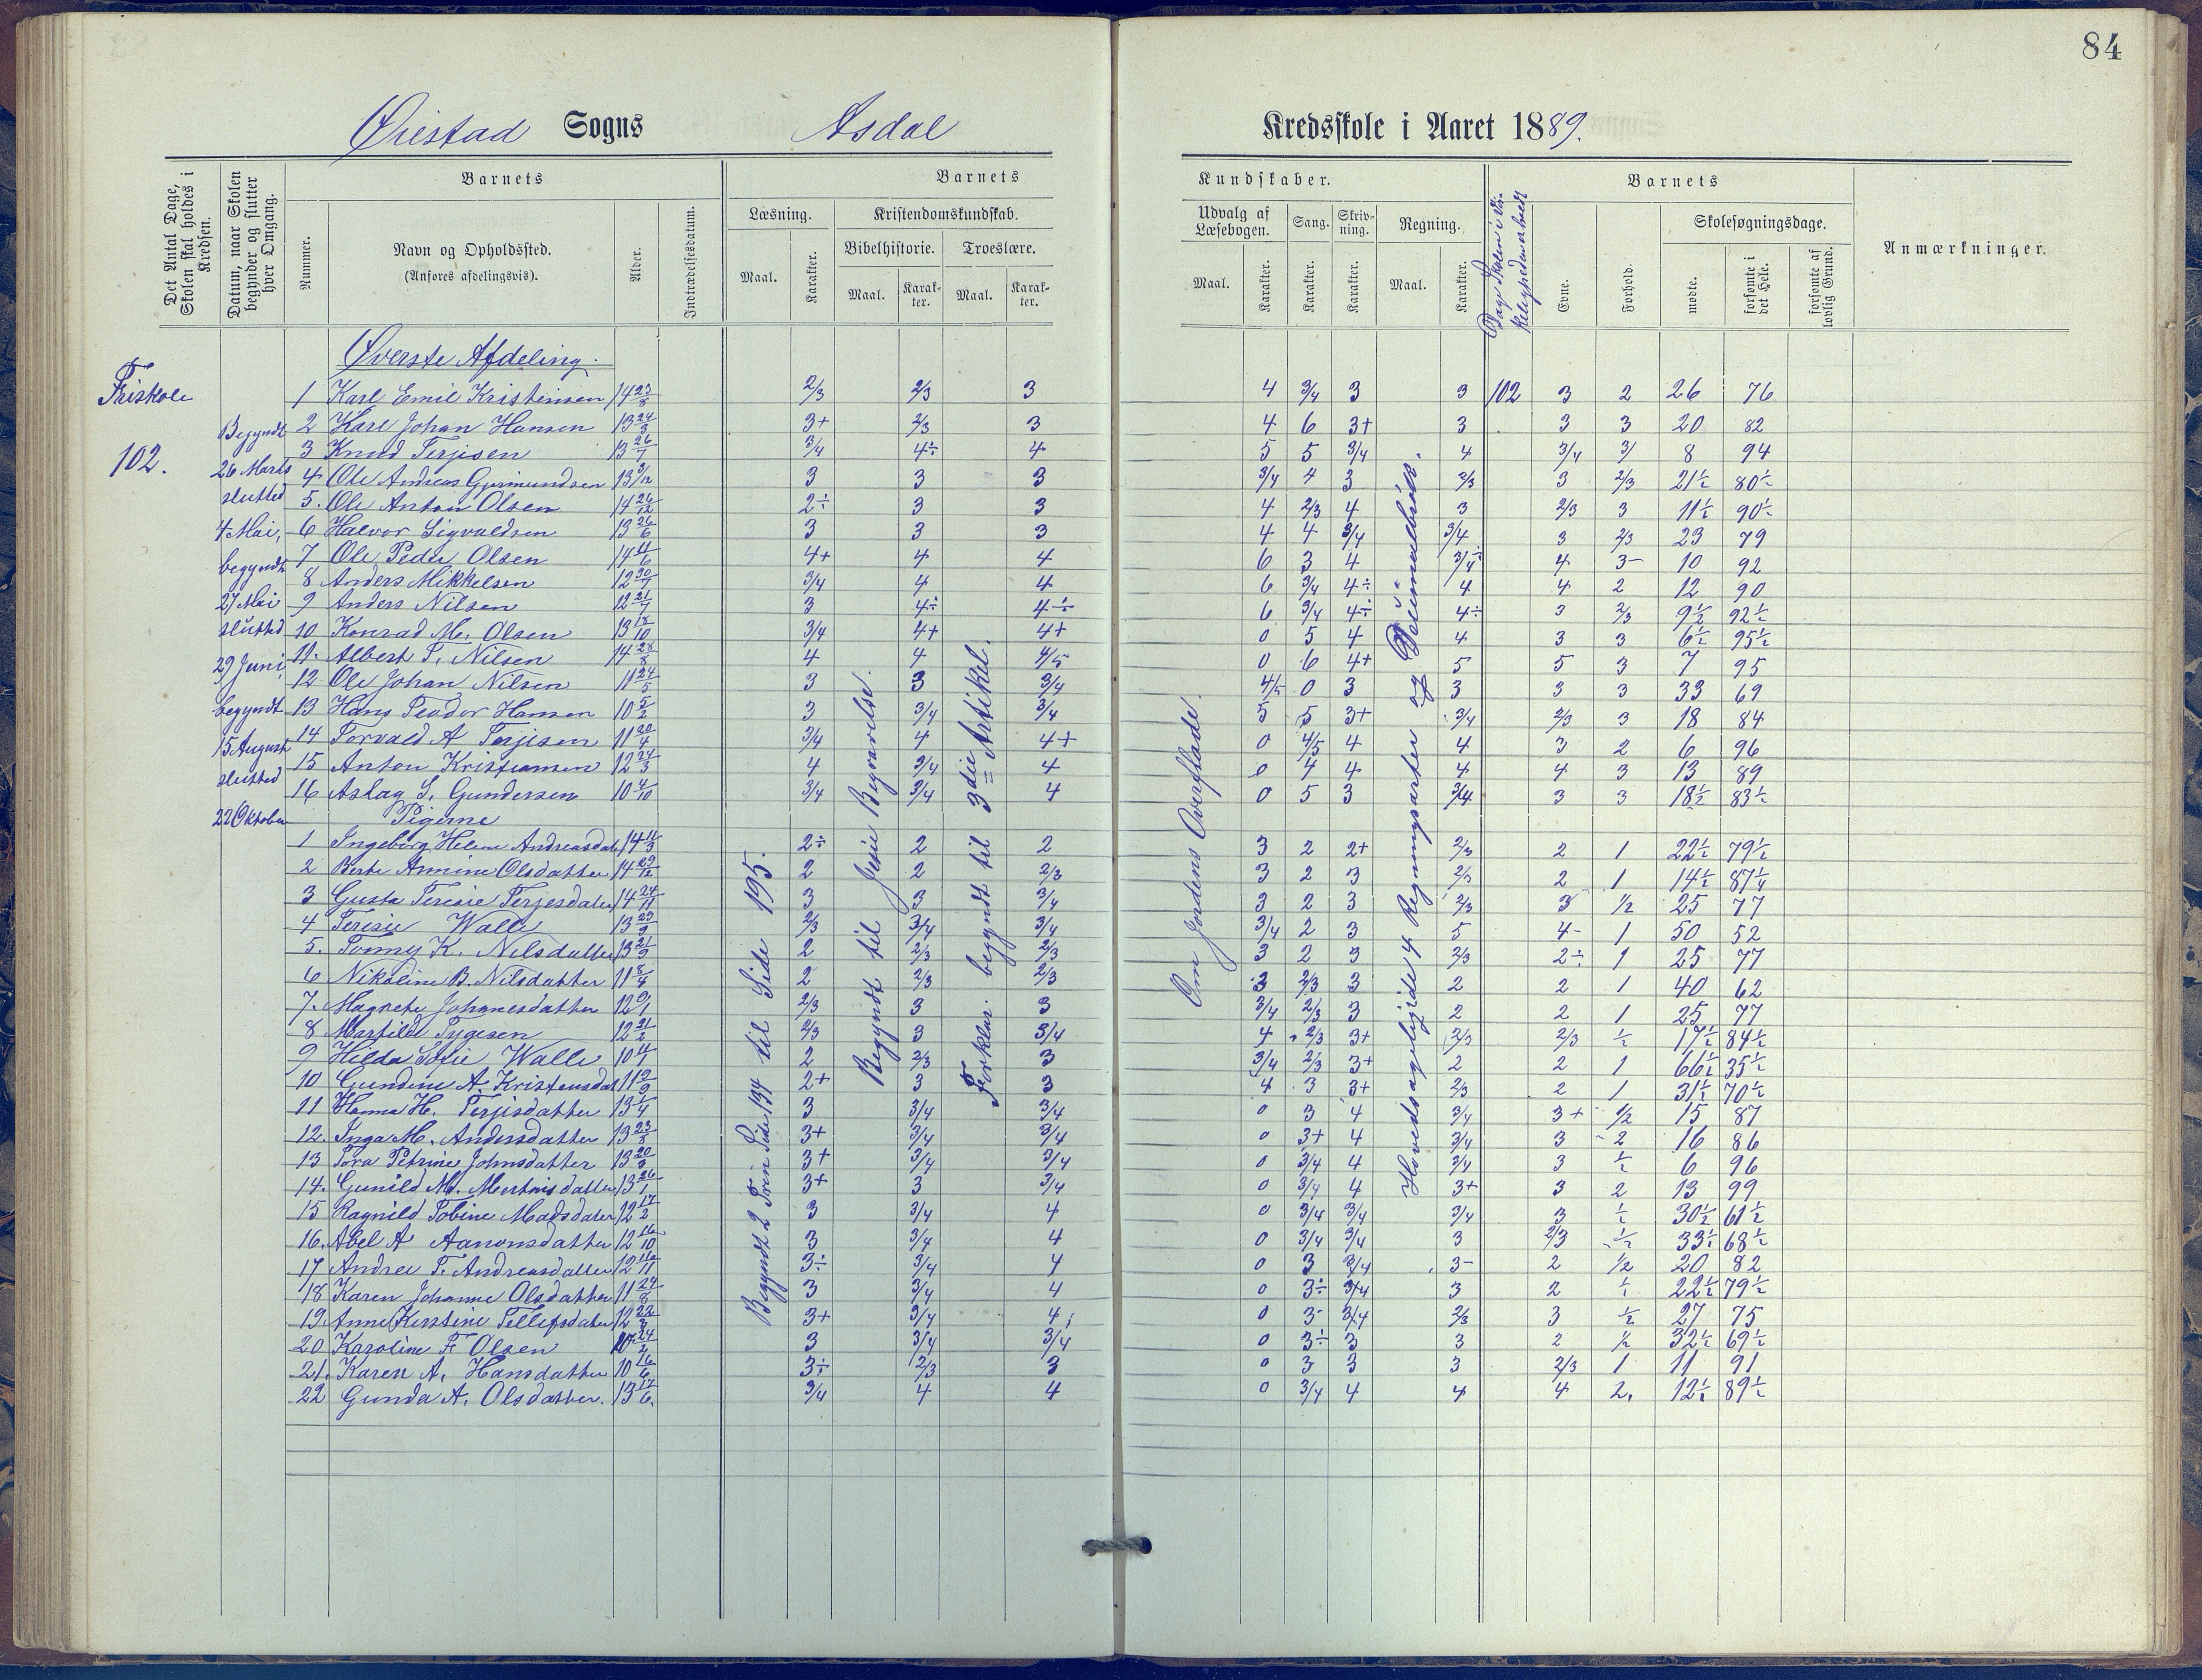 84
Øiestad Sogns Asdal Kredsskole i Aaret 1889.
Det Antal Dage, Skolen skal holdes i Kredsen.
Datum, naar Skolen begynder og slutter hver Omgang.
Barnets
Nummer.
Navn og Opholdssted.
(Anføres afdelingsvis).
Alder.
Indtrædelsesdatum.
Barnets
Læsning.
Maal.
Karakter.
Kristendomskundskab.
Bibelhistorie.
Maal.
Karakter.
Troeslære.
Maal.
Karakter.
Kundskaber.
Udvalg af Læsebogen.
Maal.
Karakter.
Sang.
Karakter.
Skrivning.
Karakter.
Regning.
Maal.
Karakter.
Dage Skolen i
Barnets
Evne.
Forhold.
Skolesøgningsdage.
mødte.
forsømte i det Hele.
forsømte af lovlig Grund.
Anmærkninger.
Friskole
102.
Begyndt
26 Marts
slutted
4 Mai,
begyndt
27 Mai
slutted
29 Juni,
begyndt
15 August
slutted
22 Oktober
Øverste Afdeling.
1 Karl Emil Kristensen 14 23/8 2/3 2/3 3 4 3/4 3 3 102 3 2 26 76
2 Karl Johan Hansen 13 24/3 3+ 2/3 3 4 6 3+ 3 3 3 20 82
3 Knud Terjesen 13 26/7 3/4 4÷ 4 5 5 3/4 4 3/4 3/ 8 94
4 Ole Andreas Gjurmundsen 13 3/12 3 3 3 3/4 4 3 2/3 3 2/3 21½ 80½
5. Ole Anton Olsen 14 26/12 2÷ 3 3 4 2/3 4 3 2/3 3 11½ 90½
6 Halvor Sigvaldsen 13 26/6 3 3 3 4 4 3/4 3/4 3 2/3 23 79
7 Ole Peder Olsen 14 4/6 4+ 4 4 6 3 4 3/4÷ 4 3- 10 92
8 Anders Mikkelsen 12 30/7 3/4 4 4 6 3/4 4÷ 4 4 2 12 90
9 Anders Nilsen 12 21/7 3 4÷ 4÷ 6 3/4 4÷ 4÷ 3 2/3 9½ 92½
10 Konrad M. Olsen 13 18/10 3/4 4+ 4+ 0 5 4 4 3 3 6½ 95½
11. Albert T. Nilsen 14 28/8 4 4 4/5 0 6 4+ 5 5 3 7 95
12 Ole Johan Nilsen 11 24/5 3 3 3/4 4/5 0 3 3 3 3 33 69
13 Hans Teodor Hansen 10 5/2 3 3/4 3/4 5 5 3+ 3/4 2/3 3 18 84
14 Torvald A Terjesen 11 20/4 3/4 4 4+ 0 4/5 4 4 3 2 6 96
15 Anton Kristiansen 12 24/3 4 3/4 4 0 4 4 4 4 3 13 89
16 Aslag S. Gundersen 10 4/10 3/4 3/4 4 0 5 3 3/4 3 3 18½ 83½
Pigerne
1 Ingeborg Helene Andreasdat 14 11/3 2÷ 2 2 3 2 2+ 2/3 2 1 22½ 79½
2 Berte Annine Olsdatter 14 29/12 2 2 2/3 3 2 3 2/3 2 1 14½ 87½
3 Gusta Teresie Terjesdatter 14 24/11 3 3 3/4 3 2 3 2/3 3 1/2 25 77
4 Teresie Walle 13 29/9 2/3 3/4 3/4 3/4 2 3 5 4- 1 50 52
5. Tonny K. Nilsdatter 13 21/9 2 2/3 2/3 3 2 3 2/3 2÷ 1 25 77
6 Nikoline B. Nilsdatter 11 8/4 2 2/3 2/3 3 2/3 3 2 2 1 40 62
7. Magrete Johannesdatter 12 9/1 2/3 3 3 3/4 2/3 3 2 2 1 25 77
8 Martilde Tygesen 12 21/2 2/3 3 3/4 4 2/3 3+ 2/3 2/3 ½ 17½ 84½
9 Hilda Sofie Walle 10 4/1 2 2/3 3 3/4 2/3 3+ 2 2 1 66½ 35½
10 Gundine A. Kristensdat 11 9/9 2+ 3 3 4 3 3+ 2/3 2 1 31½ 70½
11 Hanna H. Terjesdatter 13 1/4 3 3/4 3/4 0 3 4 3/4 3+ 1/2 15 87
12. Inga M. Andersdatter 13 23/8 3+ 3/4 3/4 0 3+ 4 3/4 3 2 16 86
13 Tora Petrine Johnsdatter 13 20/9 3+ 3/4 3/4 0 3/4 4 3/4 3 ½ 6 96
14. Gunild M. Mortensdatter 13 26/1 3+ 3 3/4 0 3/4 4 3+ 3 2 13 99
15 Ragnild Tobine Madsdatter 12 17/2 3 3/4 4 0 3/4 3/4 3/4 3 ½ 30½ 61½
16. Abel A Aanonsdatter 12 16/10 3 3/4 4 0 3/4 3/4 3 2/3 ½ 33½ 68½
17 Andrea T. Andreasdatter 12 16/11 3÷ 3/4 4 0 3 3/4 3- 2 1/2 20 82
18 Karen Johanne Olsdatter 11 24/8 3 3/4 4 0 3÷ 3/4 3 2 ½ 22½ 79½
19 Anne Kirstine Tellefsdatter 12 22/8 3+ 3/4 4 0 3- 3/4 2/3 3 ½ 27 75
20 Karoline F Olsen 10 24/2 3 3/4 3/4 0 3÷ 3 3 2 1/2 32½ 69½
21. Karen A. Hansdatter 10 16/6 3÷ 2/3 3 0 3 3 3 2/3 1 11 91
22 Gunda A. Olsdatter. 13 17/6. 3/4 4 4 0 3/4 4 4 4 2. 12½ 89½
Begyndt 2 Trin Side 134 til Side 195.
Begyndt til Jesu Begravelse.
Forklar. begyndt til 3die Artikel.
Om Jordens Overflade.
Hovedsageligide 4 Regningsarter og Decimalbrøk.